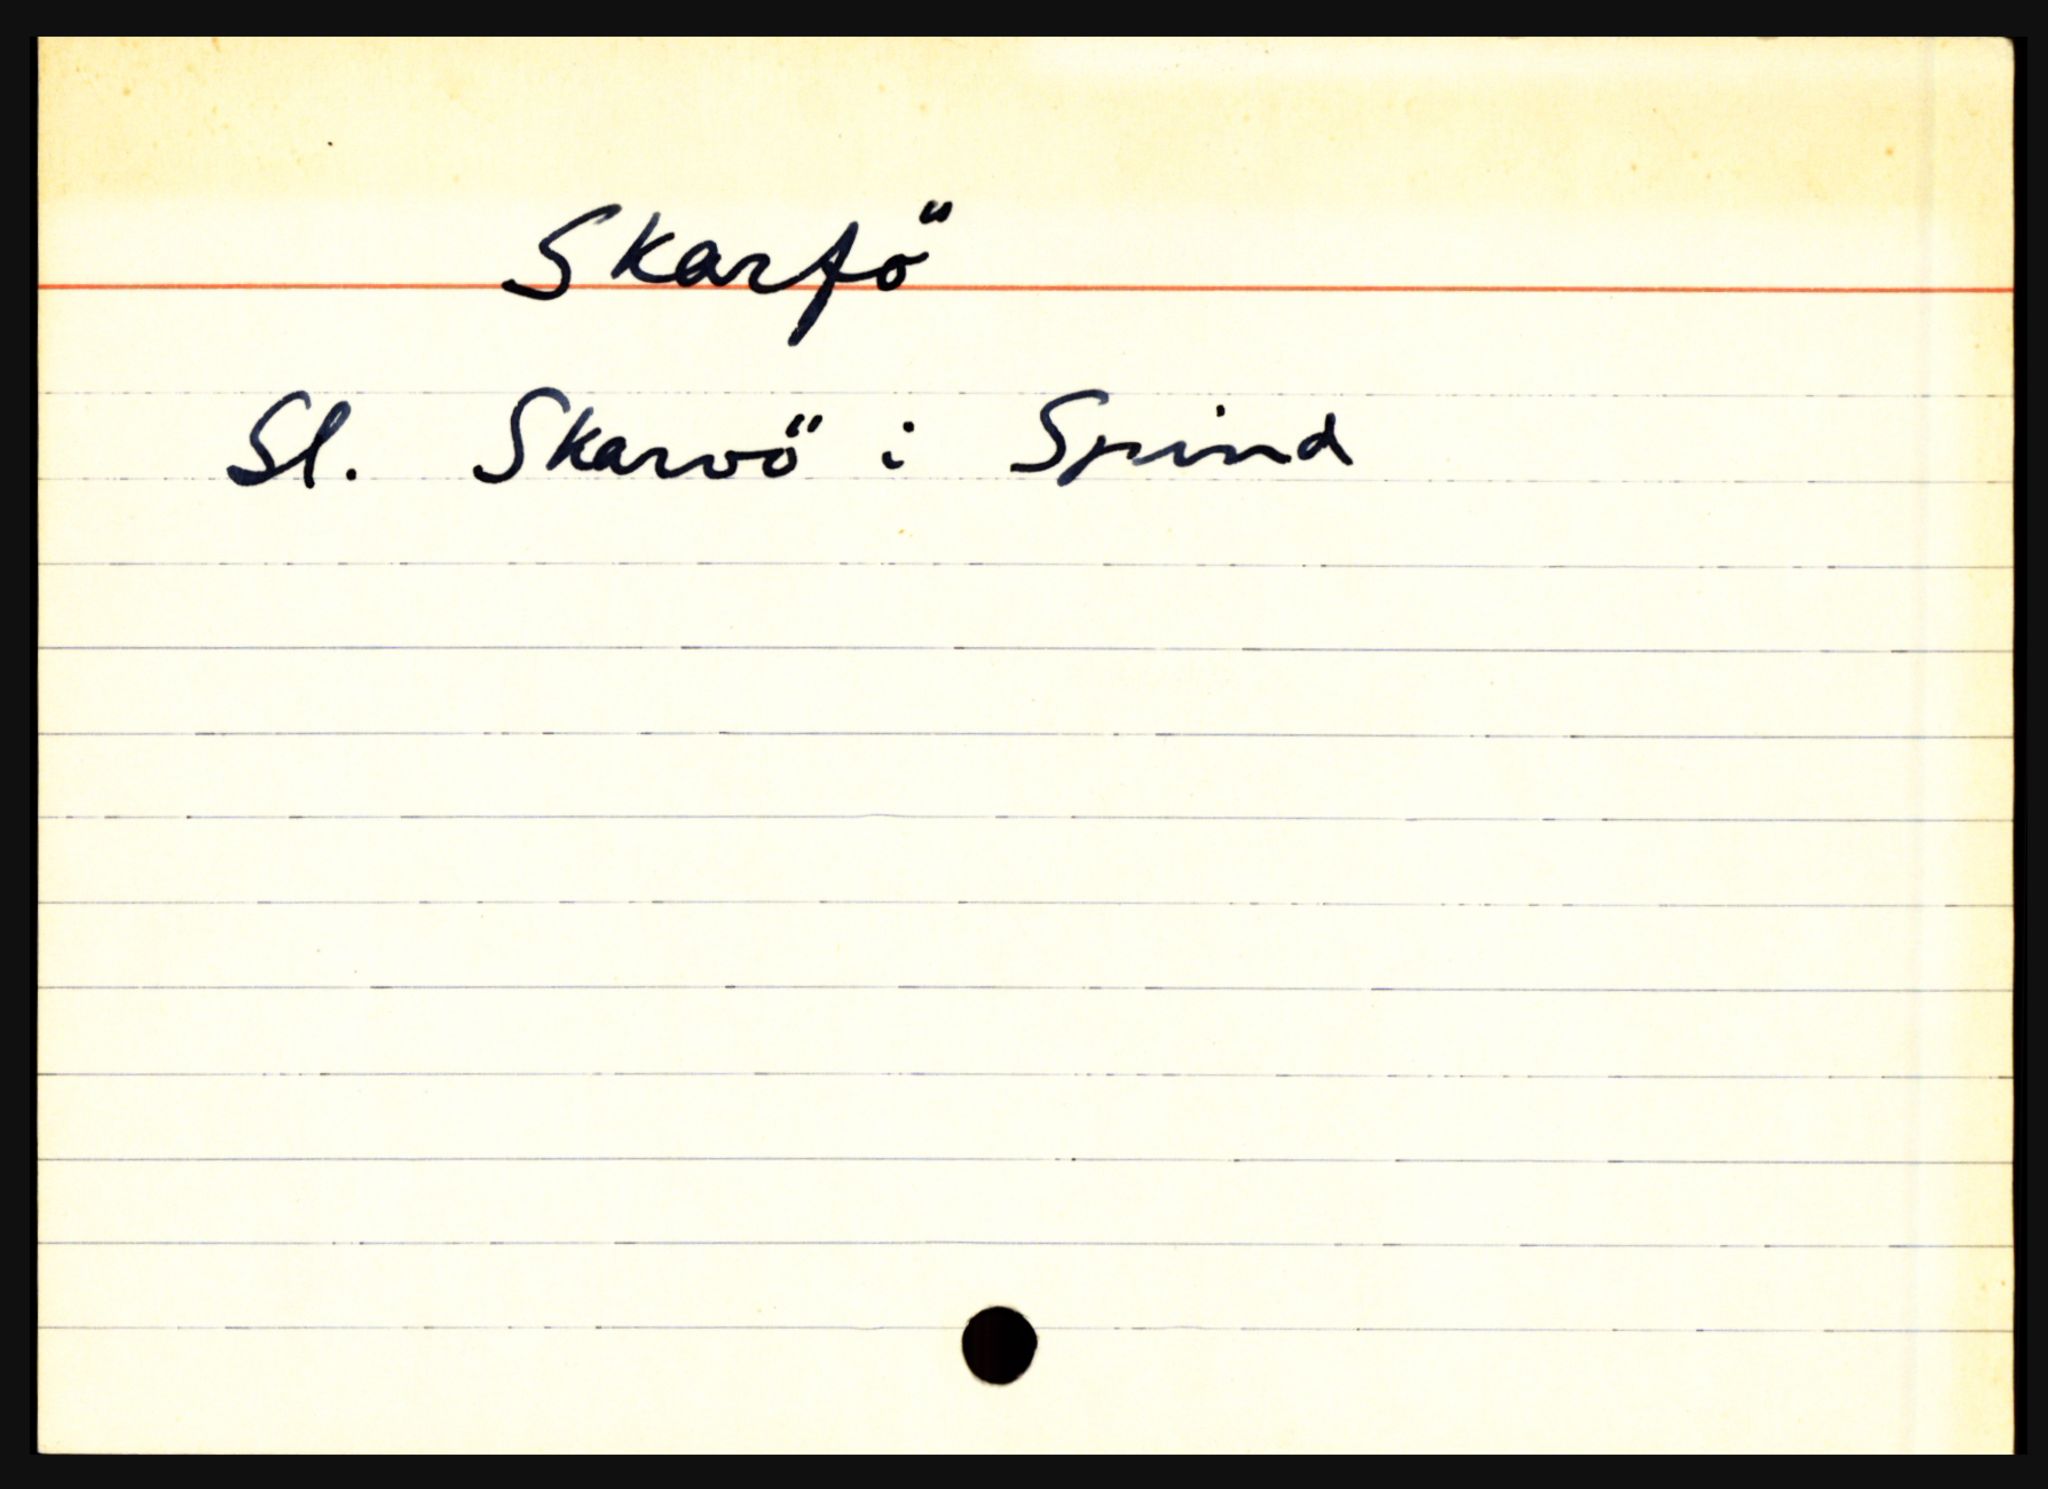 Skarfö
Sl. Skarvö i Spind